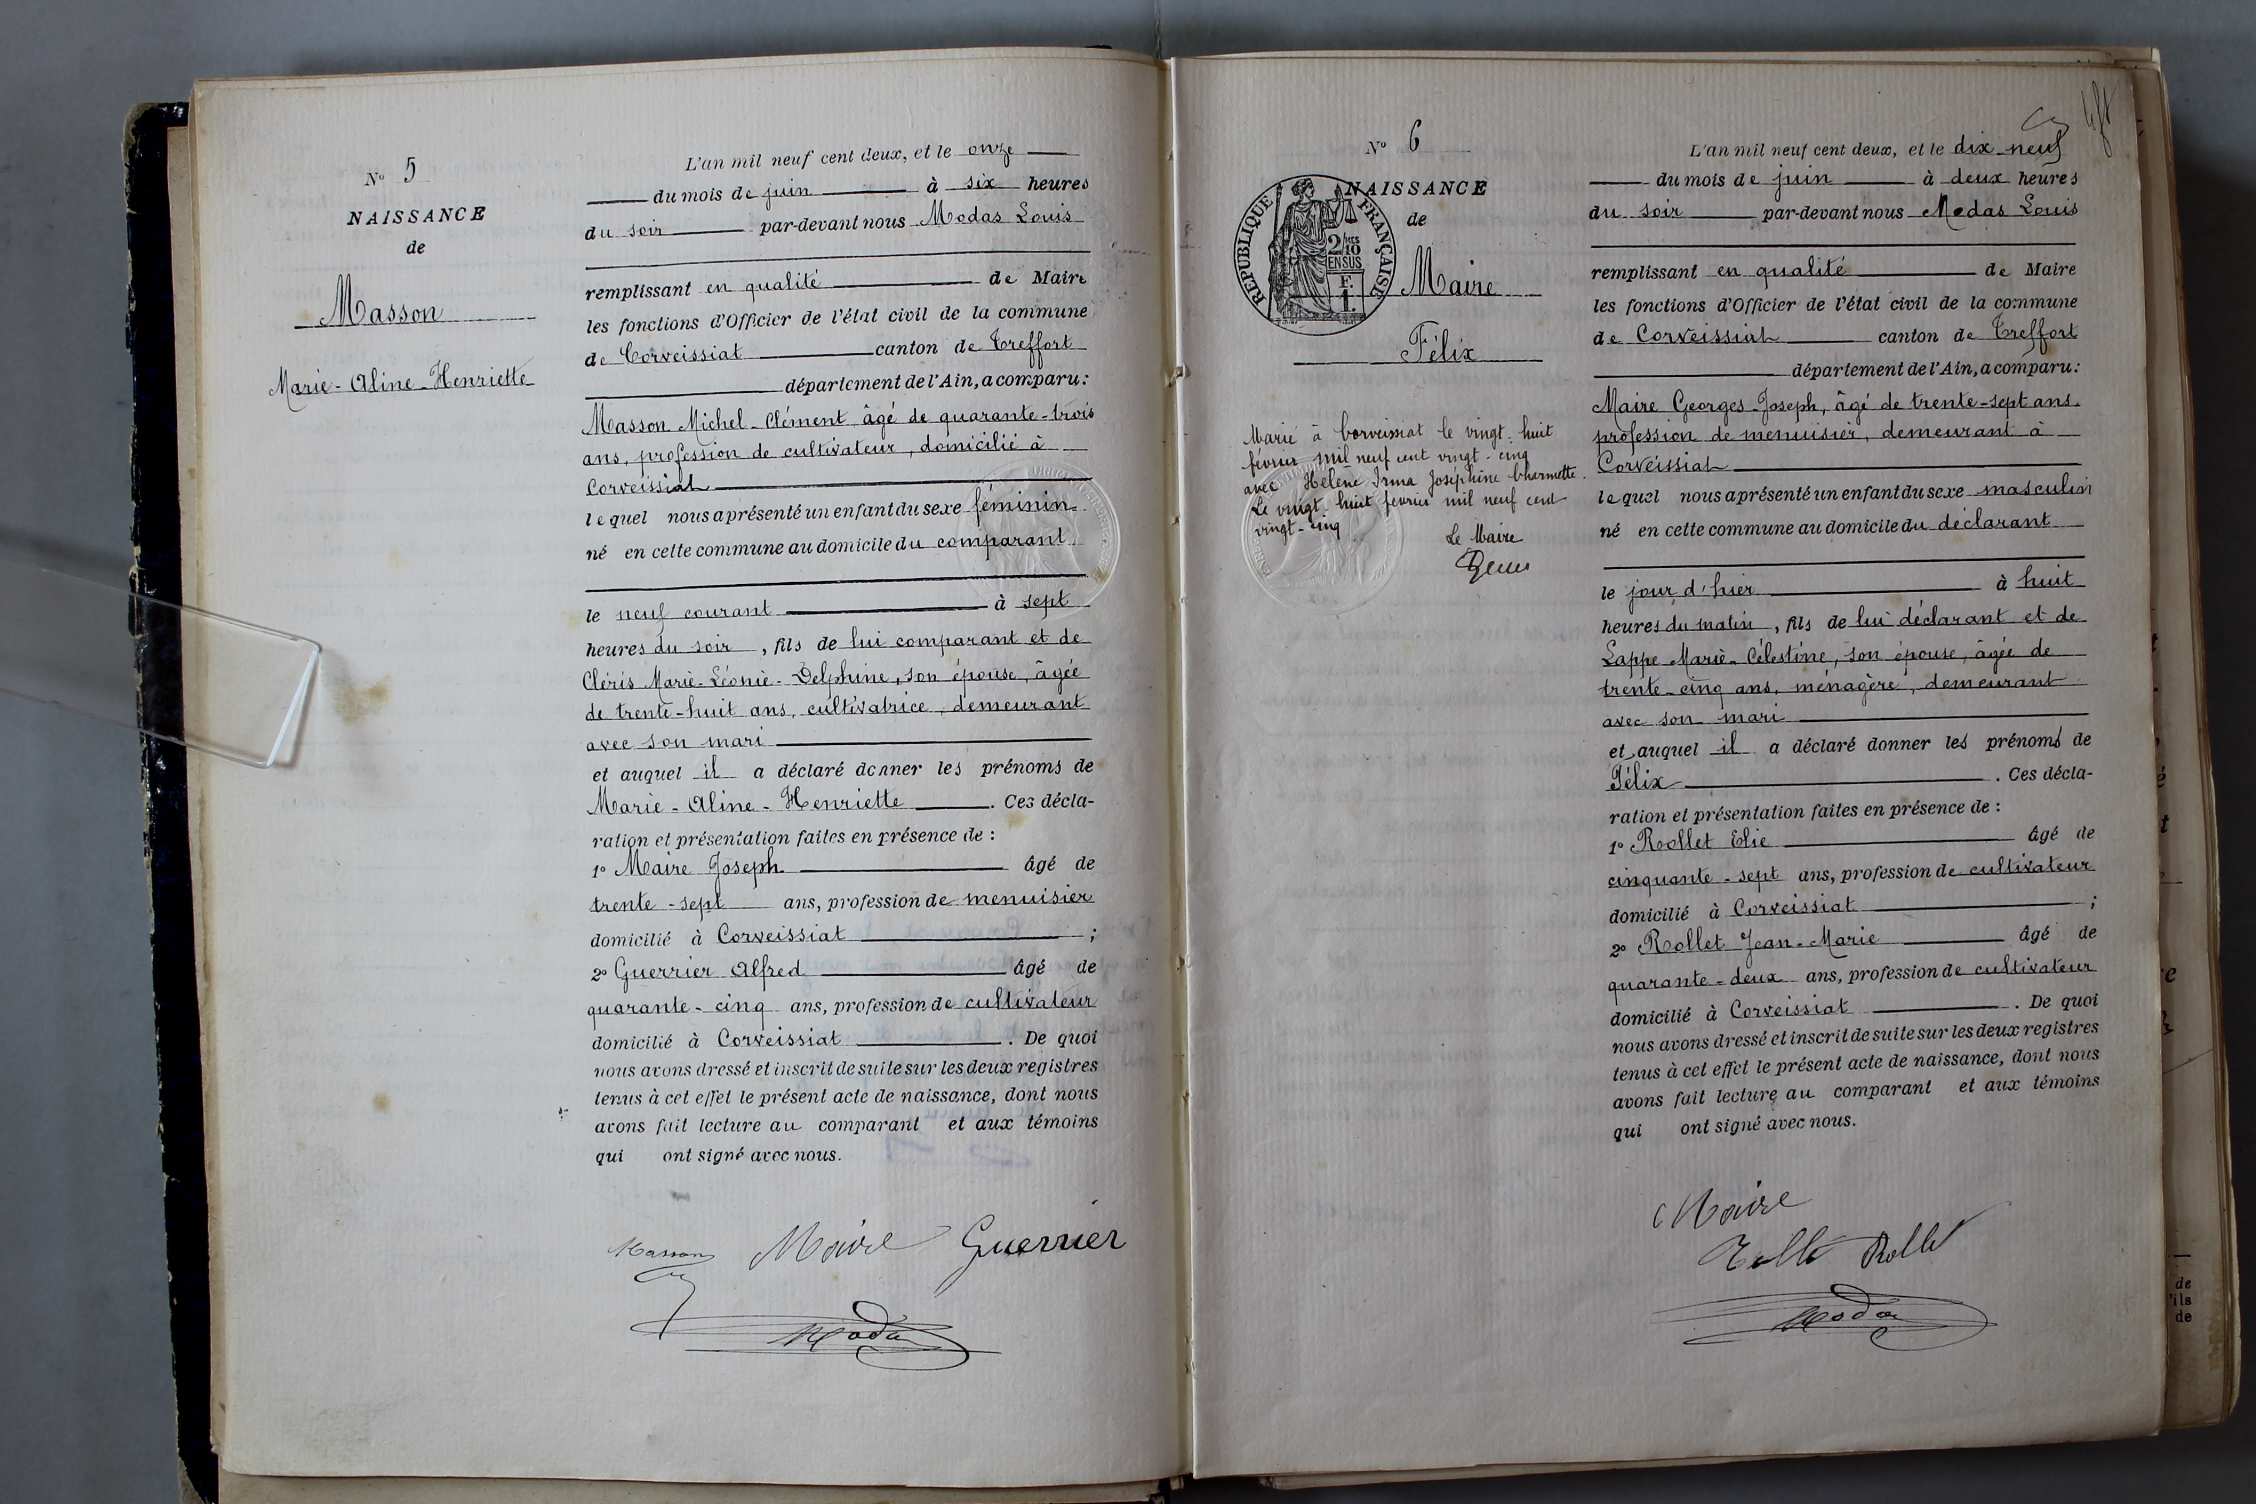 N° 5
NAISSANCE
de
Masson
Marie-Aline-Henriette
L'an mil neuf cent deux, et le onze
du mois de juin à six heures
du soir par-devant nous Modas Louis
remplissant en qualité de Maire
les fonctions d'Officier de l'état civil de la commune
de Corveissiat canton de Treffort
département de l'Ain, a comparu :
Masson Michel-Clément âgé de quarante-trois
ans, profession de cultivateur, domicilié à
Corveissiat
lequel nous a présenté un enfant du sexe féminin
né en cette commune au domicile du comparant
le neuf courant à sept
heures du soir, fils de lui comparant et de
Cléris Marie-Léonie-Delphine, son épouse, âgée
de trente-huit ans, cultivatrice, demeurant
avec son mari
et auquel il a déclaré donner les prénoms de
Marie-Aline-Henriette. Ces décla-
ration et présentation faites en présence de :
1° Maire Joseph âgé de
trente-sept ans, profession de menuisier
domicilié à Corveissiat ;
2° Guerrier Alfred âgé de
quarante-cinq ans, profession de cultivateur
domicilié à Corveissiat. De quoi
nous avons dressé et inscrit de suite sur les deux registres
tenus à cet effet le présent acte de naissance, dont nous
avons fait lecture au comparant et aux témoins
qui ont signé avec nous.
Masson Maire Guerrier
Modas
N° 6
NAISSANCE
de
Maire
Félix
RÉPUBLIQUE FRANÇAISE
2/10
EN SUS
F.
1.
Marié à Corveissiat le vingt-huit
février mil neuf cent vingt-cinq
avec Hélène Irma Joséphine Charmette.
Le vingt-huit février mil neuf cent
vingt-cinq
Le Maire
L'an mil neuf cent deux, et le dix-neuf
du mois de juin à deux heures
du soir par-devant nous Modas Louis
remplissant en qualité de Maire
les fonctions d'Officier de l'état civil de la commune
de Corveissiat canton de Treffort
département de l'Ain, a comparu :
Maire Georges-Joseph, âgé de trente-sept ans,
profession de menuisier, demeurant à
Corveissiat
lequel nous a présenté un enfant du sexe masculin
né en cette commune au domicile du déclarant
le jour d'hier à huit
heures du matin, fils de lui déclarant et de
Lappe Marie-Célestine, son épouse, âgée de
trente-cinq ans, ménagère, demeurant
avec son mari
et auquel il a déclaré donner les prénoms de
Félix. Ces décla-
ration et présentation faites en présence de :
1° Rollet Elie âgé de
cinquante-sept ans, profession de cultivateur
domicilié à Corveissiat ;
2° Rollet Jean-Marie âgé de
quarante-deux ans, profession de cultivateur
domicilié à Corveissiat. De quoi
nous avons dressé et inscrit de suite sur les deux registres
tenus à cet effet le présent acte de naissance, dont nous
avons fait lecture au comparant et aux témoins
qui ont signé avec nous.
Maire
Rollet Rollet
Modas
de
'ils
de